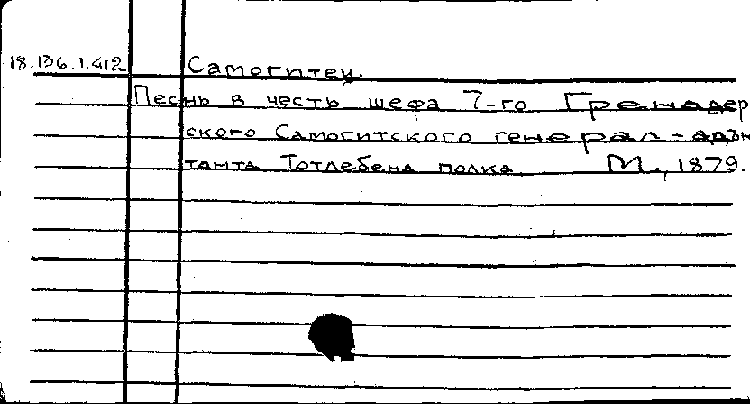 18.136.1.412 Самогитец.
Песнь в честь шефа 7-го Гренадер
ского Самогитского генерал-адъю
танта Тотлебена полка. М., 1879.